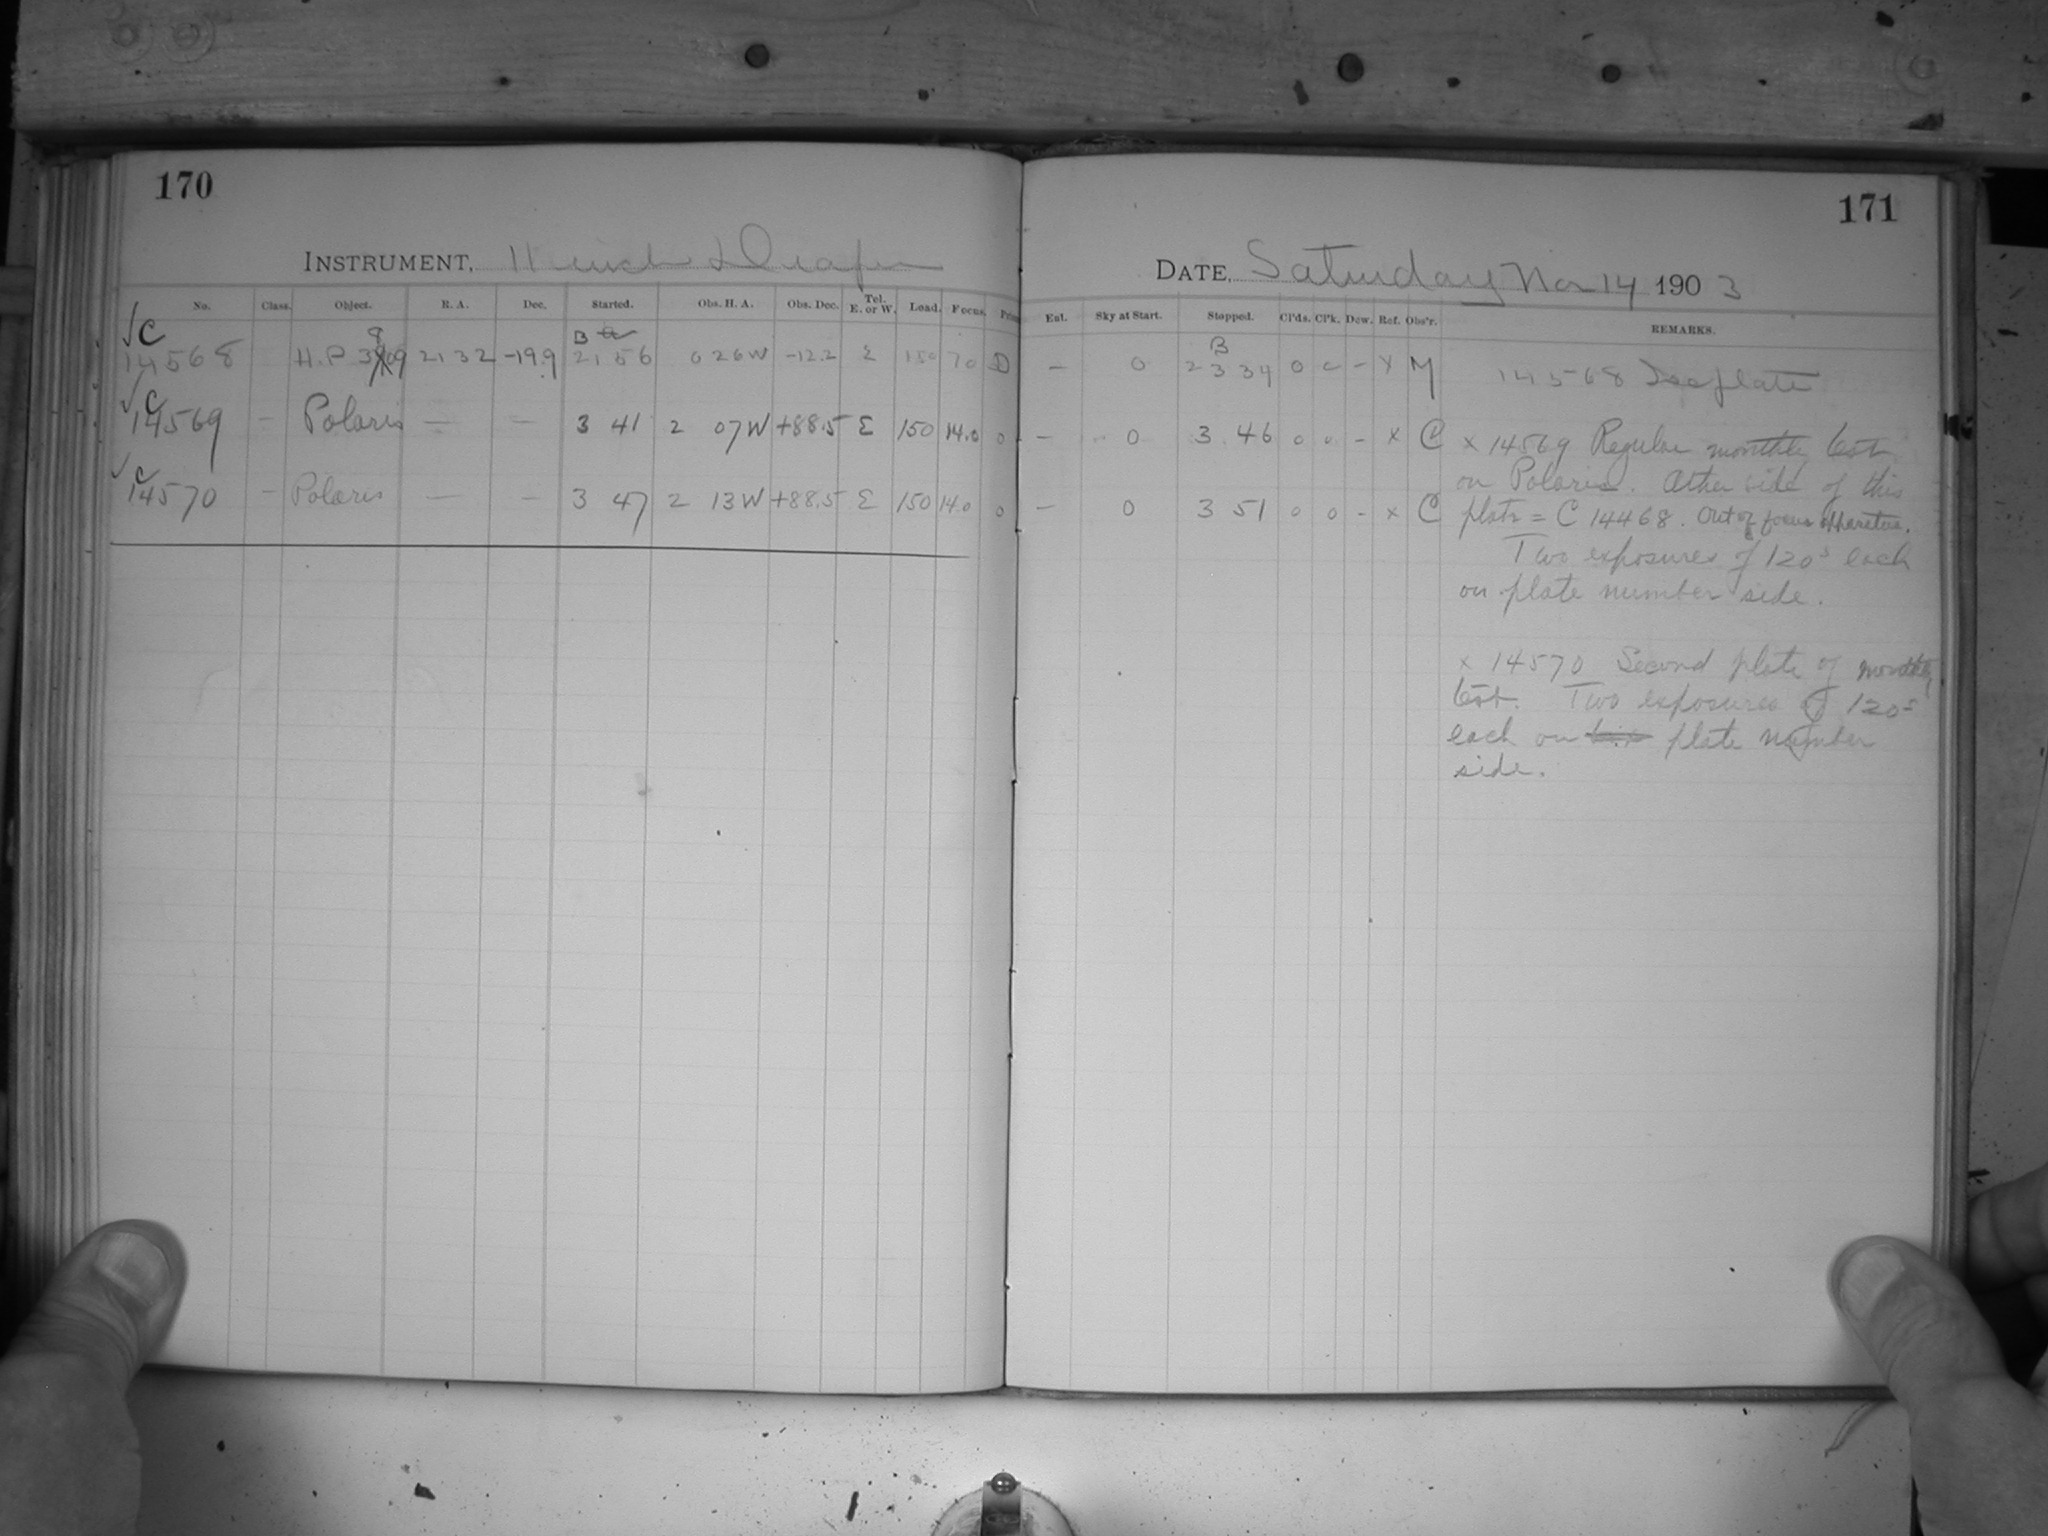 170
INSTRUMENT, 11 inch Draper
No. Class. Object. R. A. Dec. Started. Obs. H. A. Obs. Dec. Tel. E. or W. Load. Focus.
√C
14568 H.P. 21 32 -19.9 B 21 56 0 26W -12.2 E 150 70 D
√C
14569 — Polaris — — 3 41 2 07W +88.5 E 150 14.0 0
√C
14570 — Polaris — — 3 47 2 13W +88.5 E 150 14.0 0
171
DATE, Saturday Nov 14 1903
Ent. Sky at Start. Stopped. Cl'ds. Cl'k. Dew. Ref. Obs'r. REMARKS.
— 0 B 23 34 0 0 - x M 14568 See plate
— 0 3 46 0 0 - x C x 14569 Regular monthly test
on Polaris. Other side of this
— 0 3 51 0 0 - x C plate = C 14468. Out of focus apparatus.
Two exposures of 120s each
on plate number side.
x 14570 Second plate of monthly
test. Two exposures of 120s
each on plate number
side.